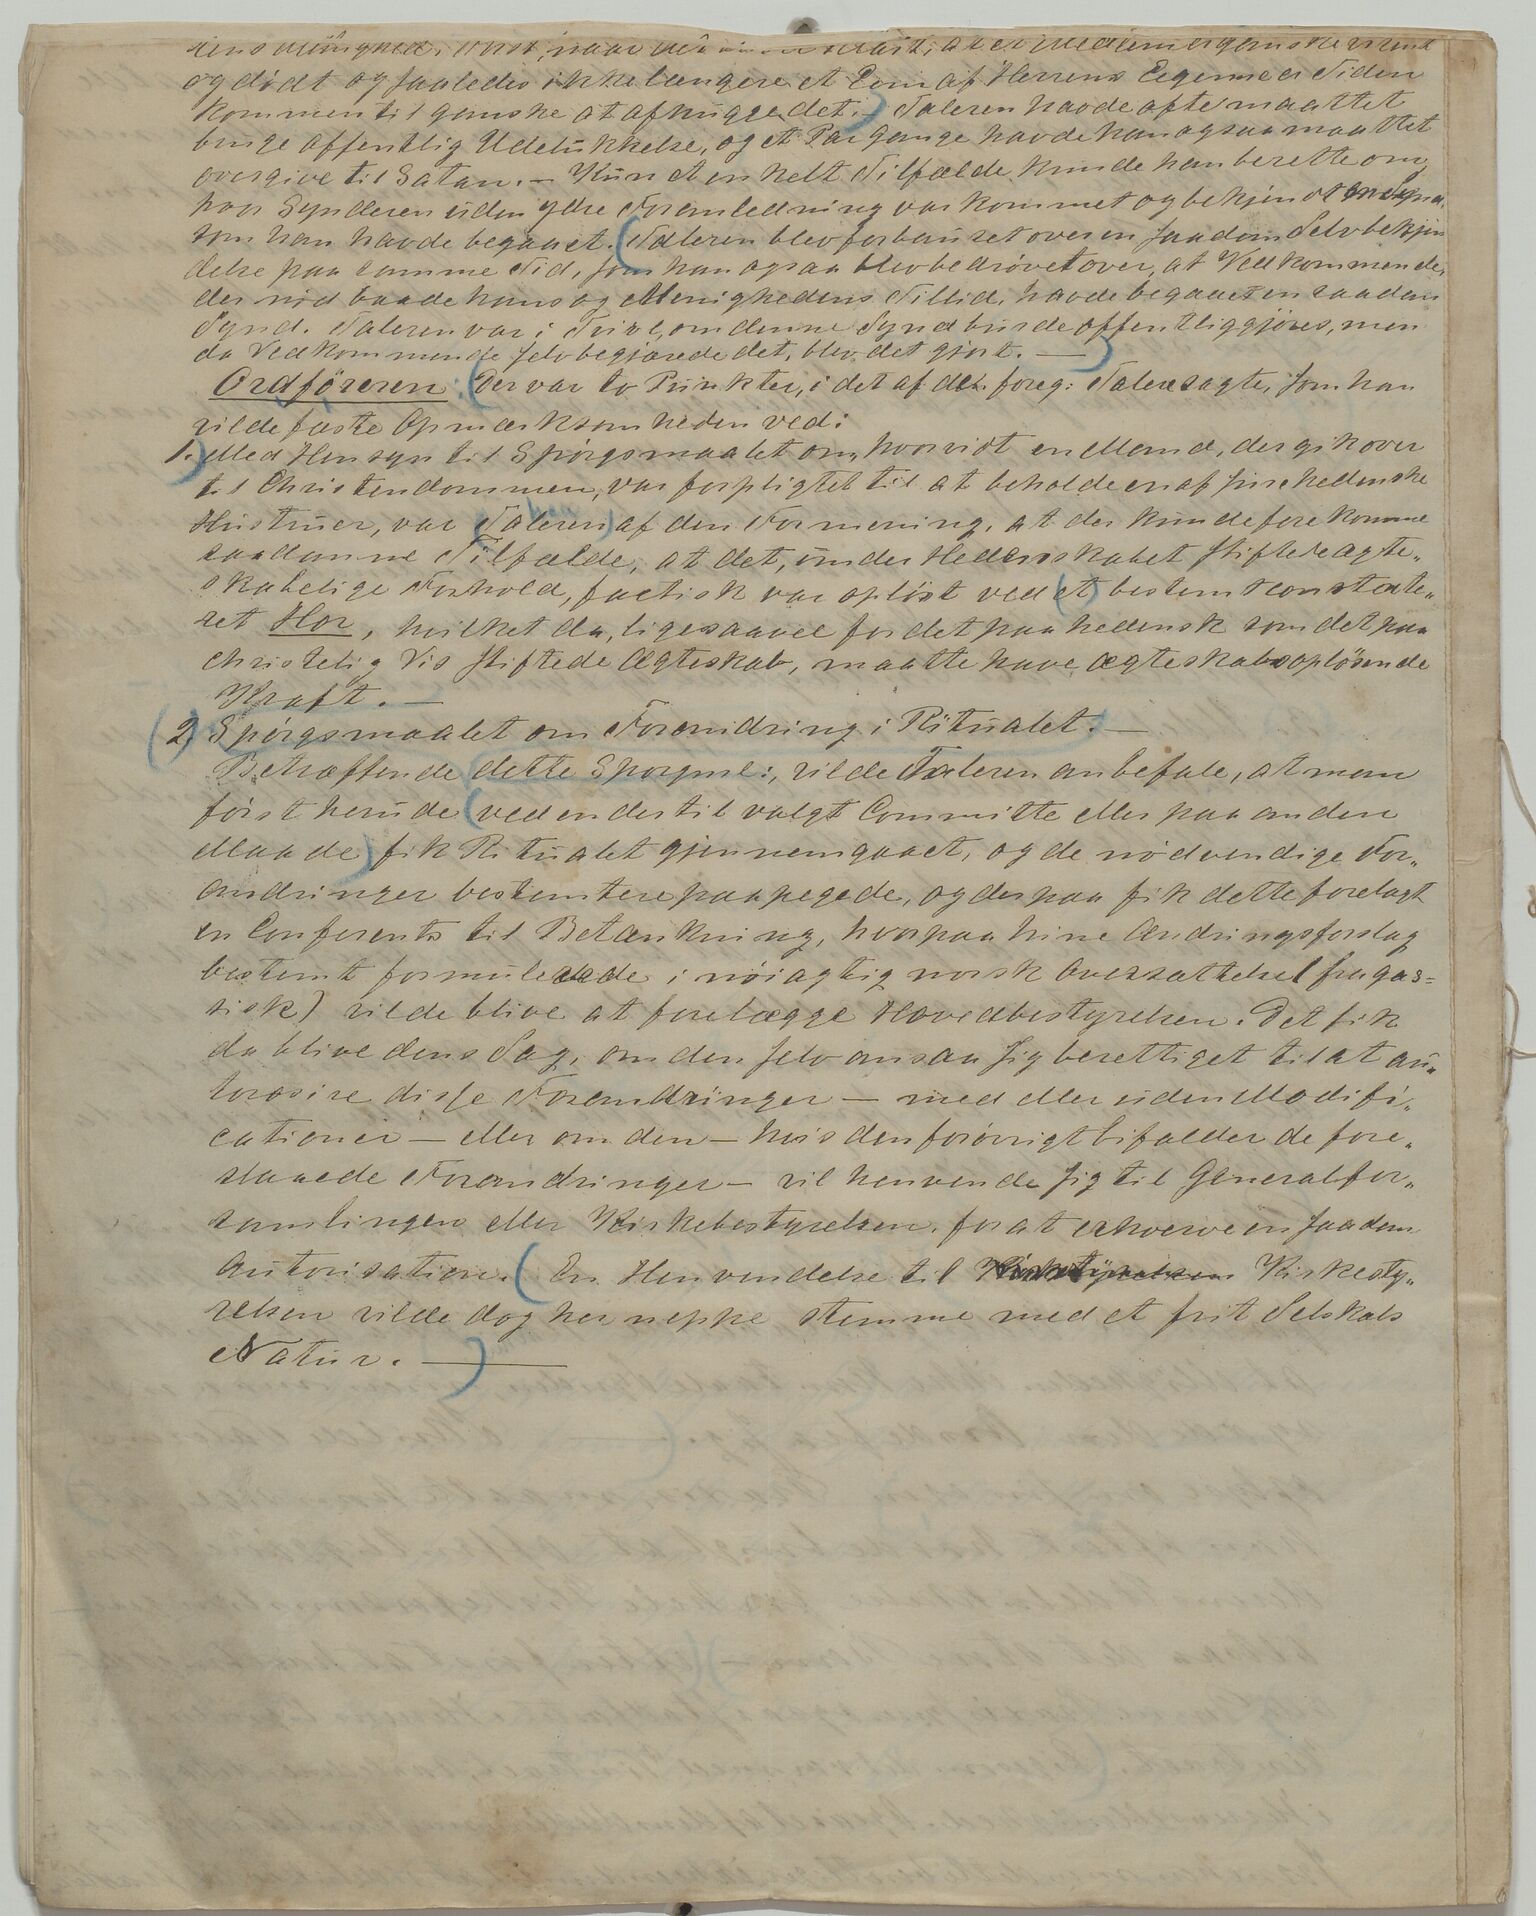 og dödt og saaledes ikke længere et Lem af Herrens Legeme er Tiden
kommen til ganske at afhugge det. Taleren havde ofte maattet
bruge offentlig Udelukkelse, og et Par Gange havde han ogsaa maattet
overgive til Satan. — Kun et enkelt Tilfælde kunde han berette om,
hvor Synderen uden ydre Foranledning var kommet og bekjendt en Synd
som han havde begaaet. (Taleren blev forbauset over en saadan Selvbekjen
delse paa samme Tid, som han ogsaa blev bedrövet over, at Vedkommende,
der nöd baade hans og Menighedens Tillid, havde begaaet en saadan
Synd. Taleren var i Tvivl, om denne Synd burde offentliggjöres, men
da Vedkommende selv begjærede det, blev det gjort. —)
Ordföreren: (Der var to Punkter, i det af den foreg: Taler sagte, som han
vilde fæste Opmærksomheden ved:
1.) Med Hensyn til Spörgsmaalet om, hvorvidt en Mand, der gik over
til Christendommen, var forpligtet til at beholde en af sine hedenske
Hustruer, var Taleren) af den Formening, at der kunde forekomme
saadanne Tilfælde, at det, under Hedenskabet stiftede ægte„
skabelige Forhold, factisk var oplöst ved (et) bestemt constate„
ret Hor, hvilket da, ligesaavel for det paa hedensk som det paa
christelig Vis stiftede Ægteskab, maatte have ægteskabsoplösende
Kraft. —
(2) Spörgsmaalet om Forandring i Ritualet. —
Betræffende dette Spörgsml:, vilde Taleren anbefale, at man
först herude (ved en dertil valgt Committe eller paa anden
Maade) fik Ritualet gjennemgaaet, og de nödvendige For„
andringer bestemtere paapegede, og derpaa fik dette forelagt
en Conferents til Betænkning, hvorpaa hine Ændringsforslag
bestemt formulerede i nöiagtig norsk Oversættelse (fra gas=
sisk) vilde blive at forelægge Hovedbestyrelsen. Det fik
da blive dens Sag, om den selv ansaa sig berettiget til at au„
torisire disse Forandringer — med eller uden Modifi„
cationer — eller om den — hvis den forövrigt bifalder de fore„
slaaede Forandringer — vil henvende sig til Generalfor„
samlingen eller Kirkebestyrelsen, for at erhverve en saadan
Autorisation. (En Henvendelse til Kirkesty„
relsen vilde dog her neppe stemme med et frit Selskabs
Natur. —)